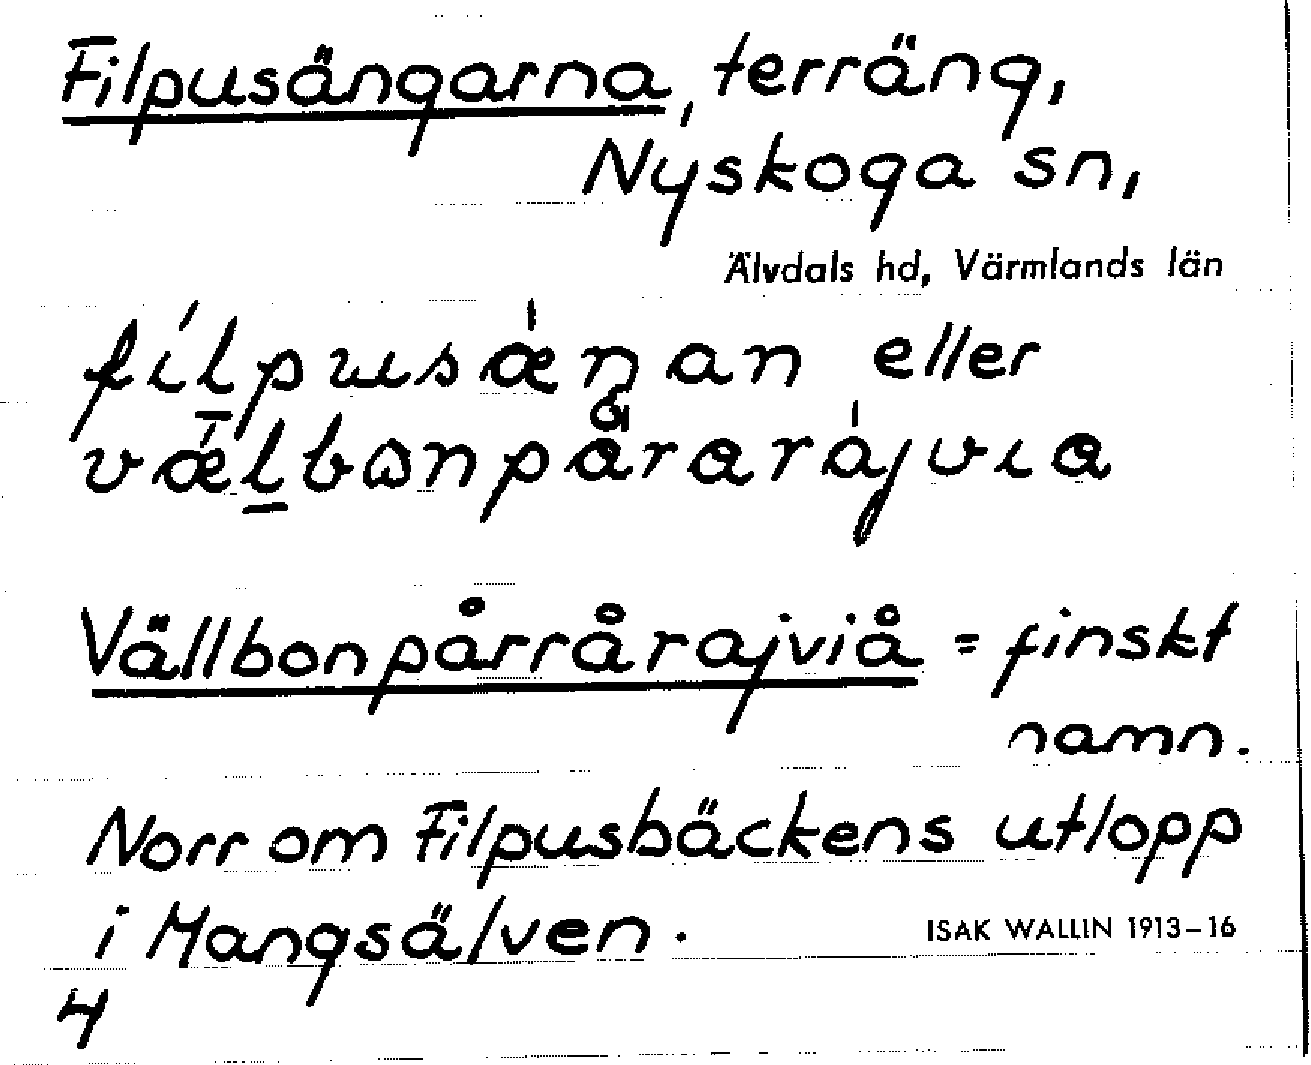 Filpusängarna, terräng,
Nyskoga sn,
Älvdals hd, Värmlands län
fílpusǽŋan eller
vǽlbωnpårarájvıa
Vällbonpårrårajviå = finskt
namn.
Norr om Filpusbäckens utlopp
i Mangsälven.
ISAK WALLIN 1913-16
4